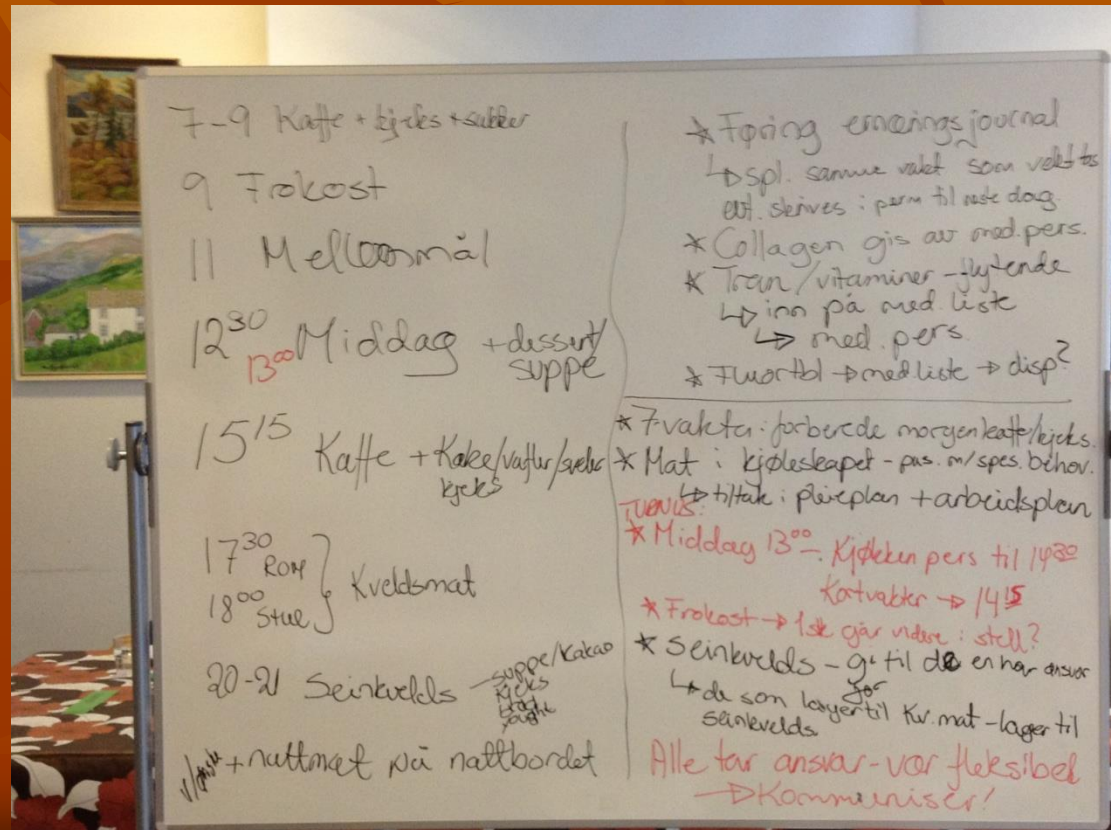 7-9 Kaffe + kjeks + sukker
9 Frokost
11 Mellommål
12³⁰ Middag + dessert/
13⁰⁰ suppe
15¹⁵ Kaffe + Kake/vafler/sveler
kjeks
17³⁰ ROM
18⁰⁰ Stue } Kveldsmat
20-21 Seinkvelds – suppe/Kakao
kjeks
brød
yoghurt
v/ønske + nattmat på nattbordet
* Føring ernæringsjournal
↳ spl. samme vakt som vekt tas
evt. skrives i perm til neste dag.
* Collagen gis av med.pers.
* Tran/vitaminer – flytende
↳ inn på med.liste
↳ med. pers.
* Fluortbl → med liste → disp?
* 7-vakter: forberede morgenkaffe/kjeks.
* Mat i kjøleskapet – pas. m/spes. behov.
↳ tiltak i pleieplan + arbeidsplan
TURNUS:
* Middag 13⁰⁰ – Kjøkken pers til 14³⁰
Kortvakter → 14¹⁵
* Frokost → 1 stk går videre i stell?
* Seinkvelds – gi til de en har ansvar
for
↳ de som lager til Kv.mat – lager til
seinkvelds
Alle tar ansvar – vær fleksibel
→ Kommuniser!